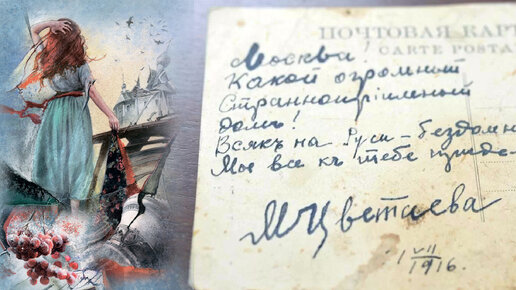 ПОЧТОВАЯ КАРТ
CARTE POSTA
Москва!
Какой огромный
Страннопріимный
домъ!
Всякъ на Руси – бездомн
Мы все къ тебе приде
МЦветаева
1 VII
1916.